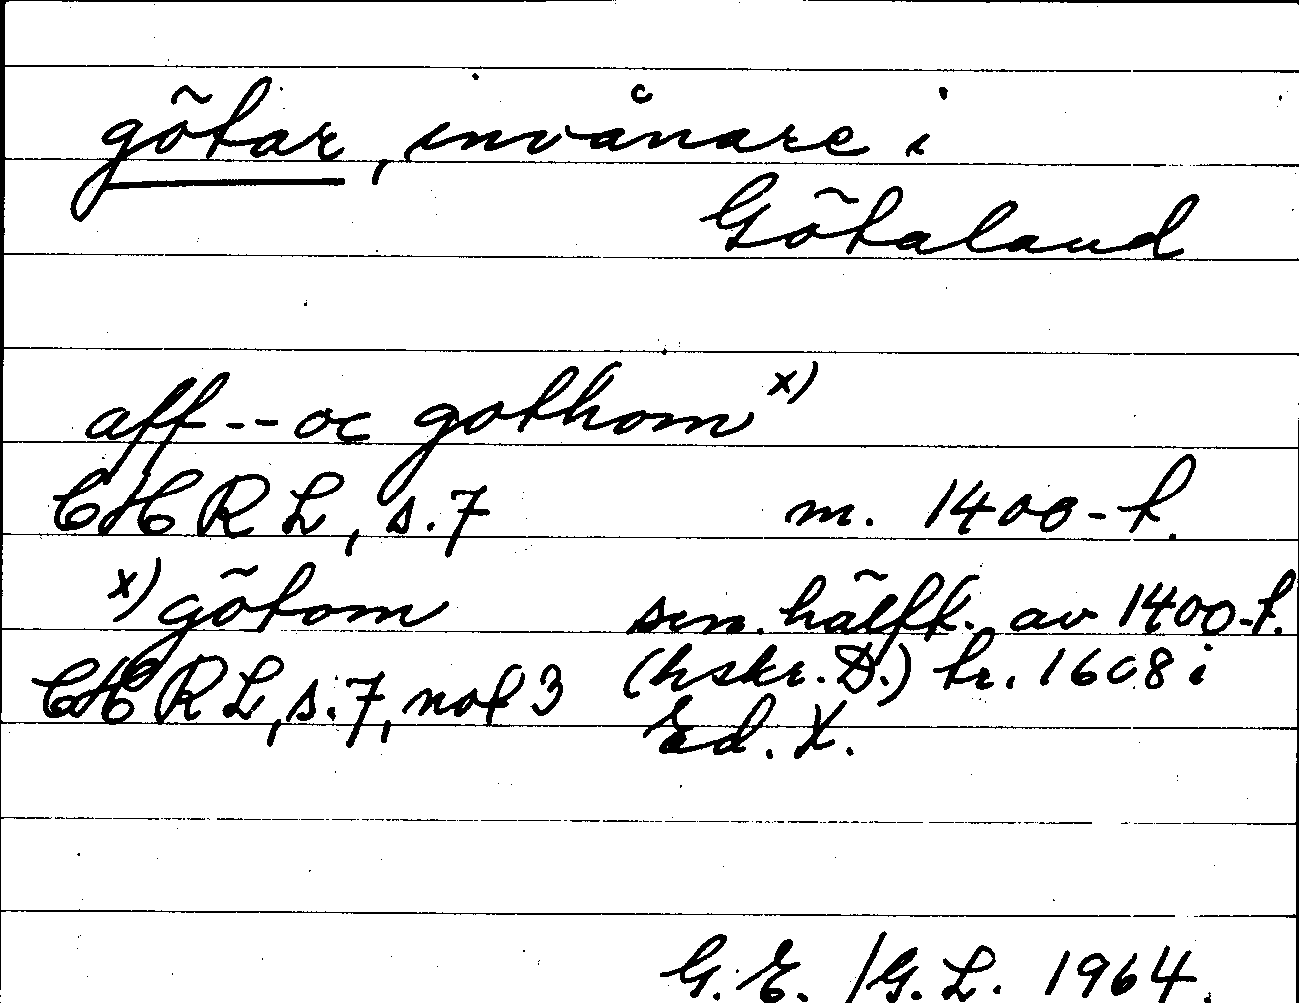 götar, invånare i
Götaland
aff -- oc gothom x)
CHRL, s. 7 m. 1400-t.
x) götom sen. hälft. av 1400-t.
CHRL, s. 7, not 3 (hskr. D.) tr. 1608 i
Ed. X.
G. E. / G. L. 1964.